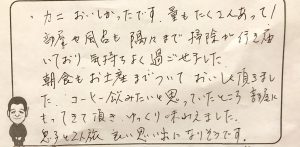 ・カニおいしかったです。量もたくさんあって!
部屋や風呂も隅々まで掃除が行き届
いており気持ちよく過ごせました。
朝食もお土産までついておいしく頂きまし
た。コーヒー飲みたいと思っていたところ部屋に
もってきて頂きゆっくり味わえました。
息子と2人旅 良い思い出になりそうです。